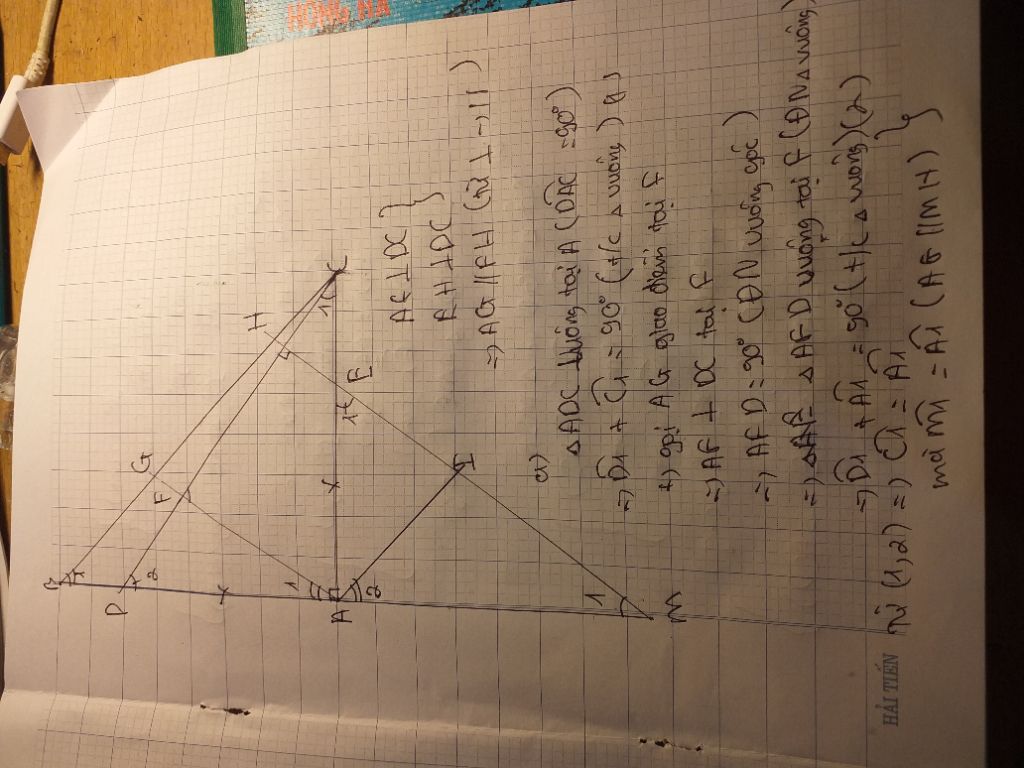 HỒNG HÀ
B
D
G
H
F
C
1
2
1
1
E
1
A
2
I
1
M
AF ⊥ DC }
EH ⊥ DC
=) AG // FH (từ ⊥ -> //)
a)
△ADC vuông tại A (DÂC = 90°)
=) D̂1 + Ĉ1 = 90° (t/c △ vuông) (1)
+) gọi AG giao điểm tại F
=) AF ⊥ DC tại F
=) AFD = 90° (ĐN vuông góc)
=) △AFD vuông tại F (ĐN △ vuông)
=) D̂1 + Â1 = 90° (t/c △ vuông) (2)
Từ (1,2) =) Ĉ1 = Â1 }
mà m̂1 = Â1 (AG // MH)
HẢI TIẾN